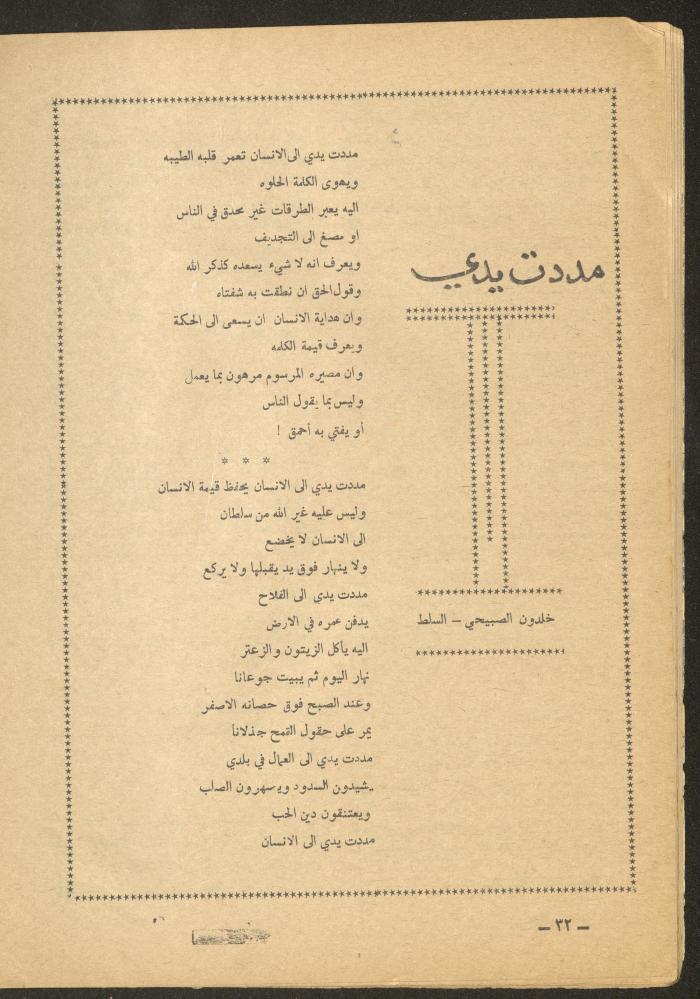 مددت يدي
خلدون الصبيحي – السلط
مددت يدي الى الانسان تعمر قلبه الطيبه
ويهوى الكلمة الحلوه
اليه يعبر الطرقات غير محدق في الناس
او مصغ الى التجديف
ويعرف انه لا شيء يسعده كذكر الله
وقول الحق ان نطقت به شفتاه
وان هداية الانسان ان يسعى الى الحكمة
ويعرف قيمة الكلمه
وان مصيره المرسوم مرهون بما يعمل
وليس بما يقول الناس
أو يفتي به أحمق !
* * *
مددت يدي الى الانسان يحفظ قيمة الانسان
وليس عليه غير الله من سلطان
الى الانسان لا يخضع
ولا ينهار فوق يد يقبلها ولا يركع
مددت يدي الى الفلاح
يدفن عمره في الارض
اليه يأكل الزيتون والزعتر
نهار اليوم ثم يبيت جوعانا
وعند الصبح فوق حصانه الاصفر
يمر على حقول القمح جذلانا
مددت يدي الى العمال في بلدي
يشيدون السدود ويصهرون الصلب
ويعتنقون دين الحب
مددت يدي الى الانسان
– ٣٢ –